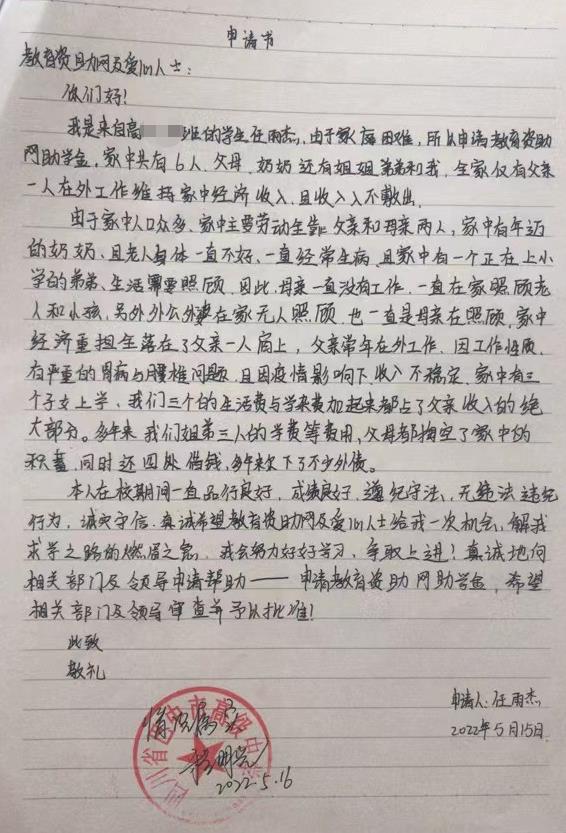 申请书
教育资助网及爱心人士：
你们好！
我是来自高 班的学生任雨杰，由于家庭困难，所以申请教育资助
网助学金，家中共有6人，父母、奶奶还有姐姐弟弟和我，全家仅有父亲
一人在外工作维持家中经济收入，且收入入不敷出。
由于家中人口众多、家中主要劳动全靠父亲和母亲两人，家中有年迈
的奶奶，且老人身体一直不好，一直经常生病，且家中有一个正在上小
学的弟弟、生活需要照顾，因此，母亲一直没有工作，一直在家照顾老
人和小孩，另外外公外婆在家无人照顾，也一直是母亲在照顾，家中
经济重担全落在了父亲一人肩上，父亲常年在外工作，因工作性质，
有严重的胃病与腰椎问题，且因疫情影响下，收入不稳定，家中有三
个子女上学，我们三个的生活费与学杂费加起来都占了父亲收入的绝
大部分。多年来，我们姐弟三人的学费等费用，父母都掏空了家中的
积蓄，同时还四处借钱，多年来欠下了不少外债。
本人在校期间一直品行良好，成绩良好，遵纪守法，无违法违纪
行为，诚实守信，真诚希望教育资助网及爱心人士给我一次机会，解我
求学之路的燃眉之急，我会努力好好学习，争取上进！真诚地向
相关部门及领导申请帮助——申请教育资助网助学金，希望
相关部门及领导审查并予以批准！
此致
敬礼
申请人：任雨杰
2022年5月15日
情况属实
2022.5.16
四川省巴中市高级中学